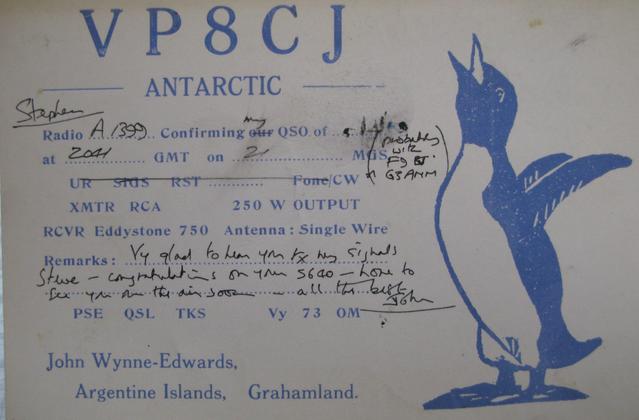 VP8CJ
ANTARCTIC
Stephen
Radio A1399 Confirming our my QSO of
at 2041 GMT on 21 MGS
(probably with F9BT. or G3AMM)
UR SIGS RST Fone/CW
XMTR RCA 250 W OUTPUT
RCVR Eddystone 750 Antenna: Single Wire
Remarks: Vy glad to hear you rx my signals
Steve - congratulations on your S640 - hope to
see you on the air soon - all the best
John
PSE QSL TKS Vy 73 OM
John Wynne-Edwards,
Argentine Islands, Grahamland.